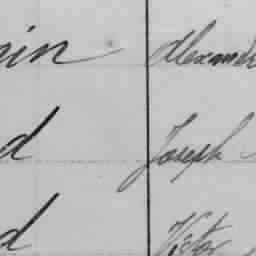 nin Alexand
d Joseph
d Victor